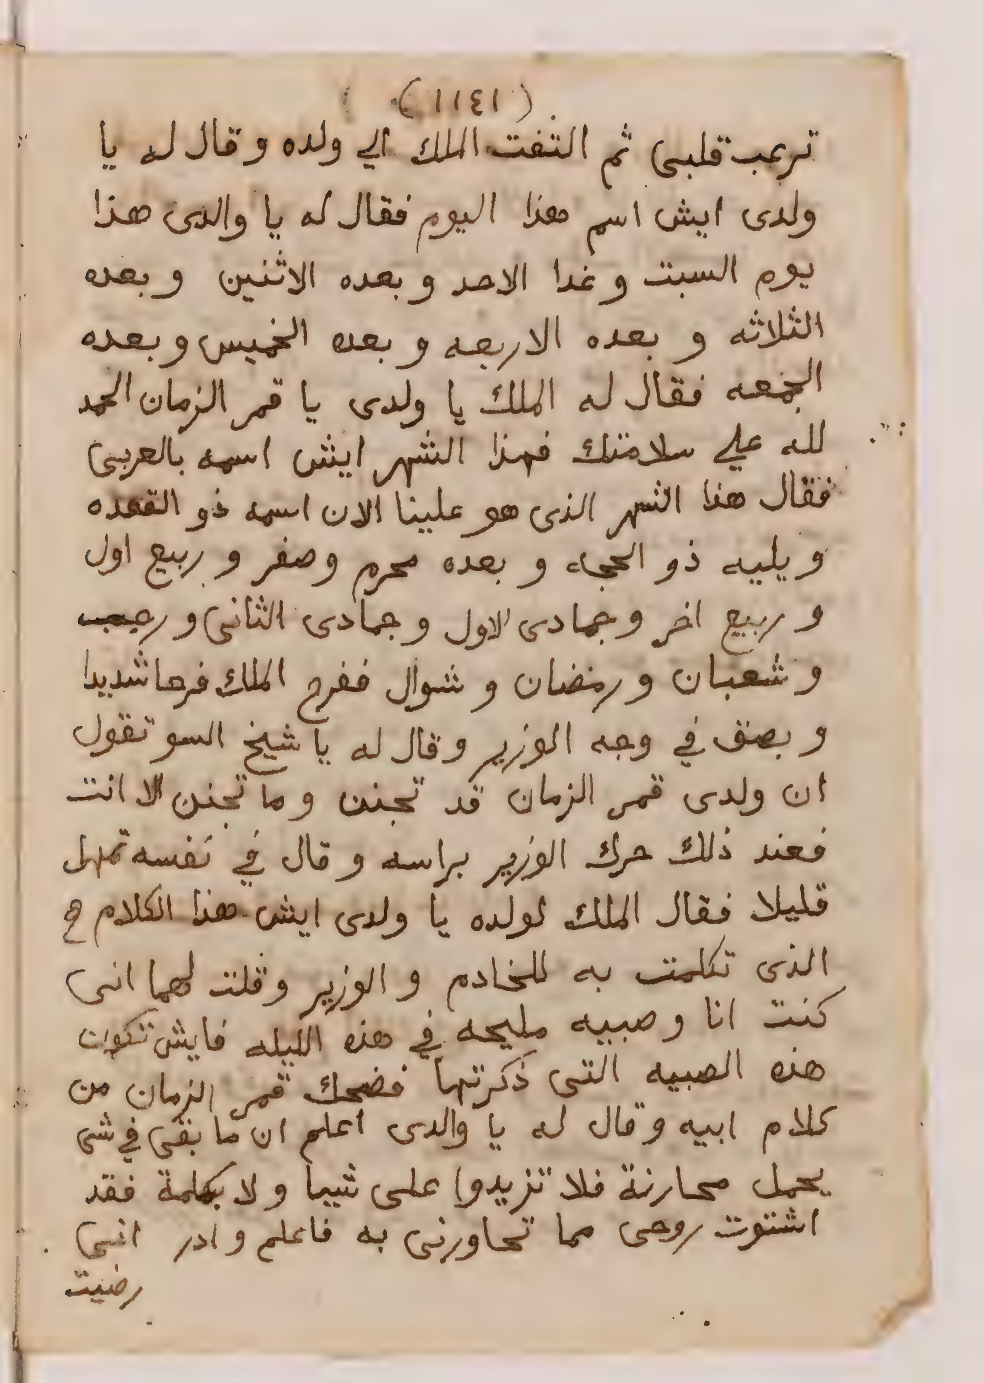 (١١٤١)
ترعب قلبى ثم التفت الملك الي ولده وقال له يا
ولدى ايش اسم هذا اليوم فقال له يا والدى هذا
يوم السبت وغدا الاحد وبعده الاثنين وبعده
الثلاثه وبعده الاربعه وبعده الخميس وبعده
الجمعه فقال له الملك يا ولدى يا قمر الزمان الحمد
لله علي سلامتك فهذا الشهر ايش اسمه بالعربى
فقال هذا الشهر الذى هو علينا الان اسمه ذو القعده
ويليه ذو الحجه وبعده محرم وصفر وربيع اول
وربيع اخر وجمادى الاول وجمادى الثانى ورجب
وشعبان ورمضان وشوال ففرح الملك فرحا شديدا
وبصق في وجه الوزير وقال له يا شيخ السو تقول
ان ولدى قمر الزمان قد تجنن وما تجنن الا انت
فعند ذلك حرك الوزير براسه وقال في نفسه تمهل
قليلا فقال الملك لولده يا ولدى ايش هذا الكلام
الذى تكلمت به للخادم والوزير وقلت لهما انى
كنت انا وصبيه مليحه في هذه الليله فايش تكون
هذه الصبيه التى ذكرتها فضحك قمر الزمان من
كلام ابيه وقال له يا والدى اعلم ان ما بقى في شى
يحمل محارنة فلا تزيدوا على شييا ولا بكلمة فقد
اشتوت روحى مما تحاورنى به فاعلم وادر انى
رضيت